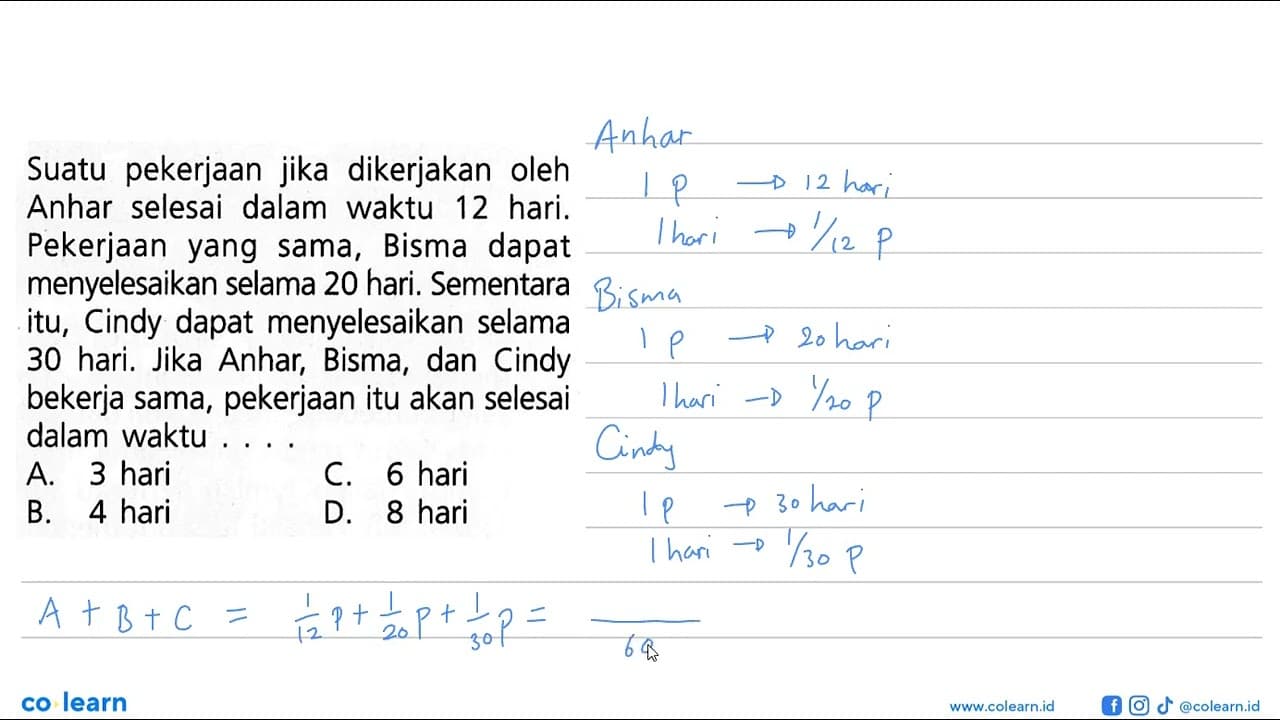 Suatu pekerjaan jika dikerjakan oleh
Anhar selesai dalam waktu 12 hari.
Pekerjaan yang sama, Bisma dapat
menyelesaikan selama 20 hari. Sementara
itu, Cindy dapat menyelesaikan selama
30 hari. Jika Anhar, Bisma, dan Cindy
bekerja sama, pekerjaan itu akan selesai
dalam waktu . . . .
A. 3 hari C. 6 hari
B. 4 hari D. 8 hari
Anhar
1 p → 12 hari
1 hari → 1/12 p
Bisma
1 p → 20 hari
1 hari → 1/20 p
Cindy
1 p → 30 hari
1 hari → 1/30 p
A + B + C = 1/12 p + 1/20 p + 1/30 p = /60
co learn
www.colearn.id
@colearn.id